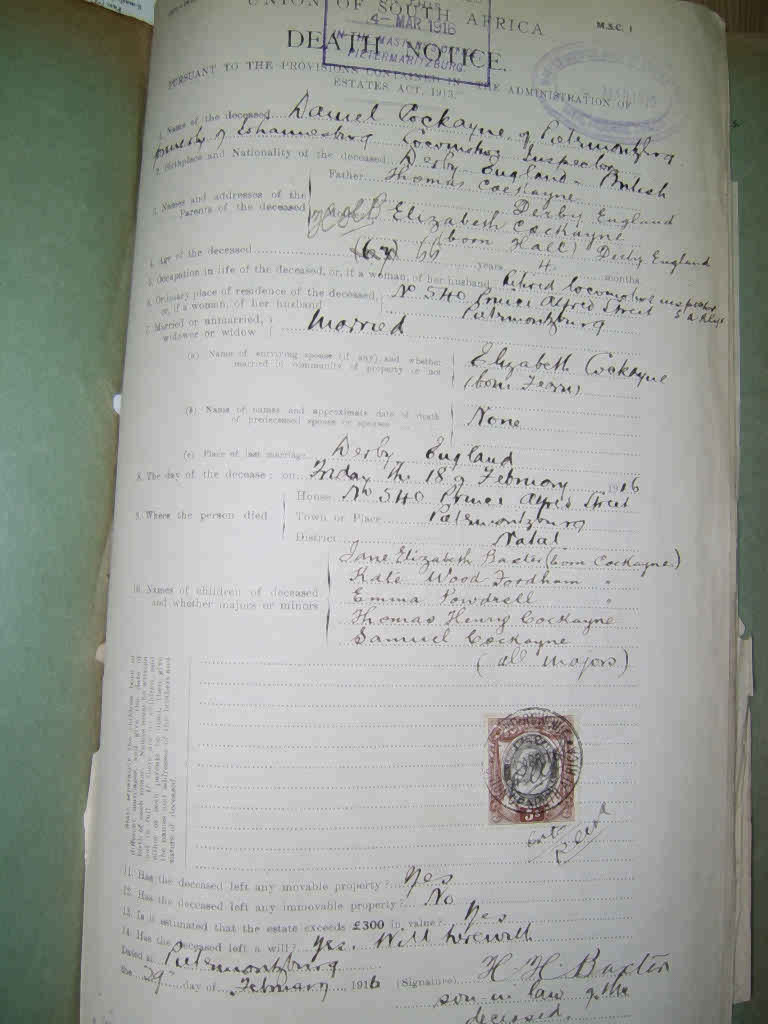 UNION OF SOUTH AFRICA
M.S.C. 1
4-MAR 1916
IN THE MASTER'S OFFICE
PIETERMARITZBURG.
DEATH NOTICE.
PURSUANT TO THE PROVISIONS CONTAINED IN THE ADMINISTRATION OF
ESTATES ACT, 1913.
1. Name of the deceased Daniel Cockayne of Pietermaritzburg
formerly of Johannesburg Locomotive Inspector
2. Birthplace and Nationality of the deceased Derby England - British
3. Names and addresses of the Parents of the deceased
Father Thomas Cockayne
Derby England
Elizabeth Cockayne
(born Hall) Derby England
4. Age of the deceased years 4 months
5. Occupation in life of the deceased, or, if a woman, of her husband Retired locomotive inspector
6. Ordinary place of residence of the deceased, or, if a woman, of her husband No 540 Prince Alfred Street
Pietermaritzburg
7. Married or unmarried, widower or widow Married
(a) Name of surviving spouse (if any) and whether married in community of property or not
Elizabeth Cockayne
(born Fearn)
(b) Name or names and approximate date of death of predeceased spouse or spouses
None
(c) Place of last marriage Derby England
8. The day of the decease: on Friday the 18 of February 1916
9. Where the person died
House No 540 Prince Alfred Street
Town or Place Pietermaritzburg
District Natal
10. Names of children of deceased and whether majors or minors
Jane Elizabeth Baxter (born Cockayne)
Kate Wood Fordham "
Emma Powdrell "
Thomas Henry Cockayne
Samuel Cockayne
(all majors)
11. Has the deceased left any movable property? Yes
12. Has the deceased left any immovable property? No
13. Is it estimated that the estate exceeds £300 in value? Yes
14. Has the deceased left a will? Yes. Will herewith
Dated at Pietermaritzburg
the 29 day of February 1916 (Signature) H. H. Baxter
son-in-law of the
deceased.